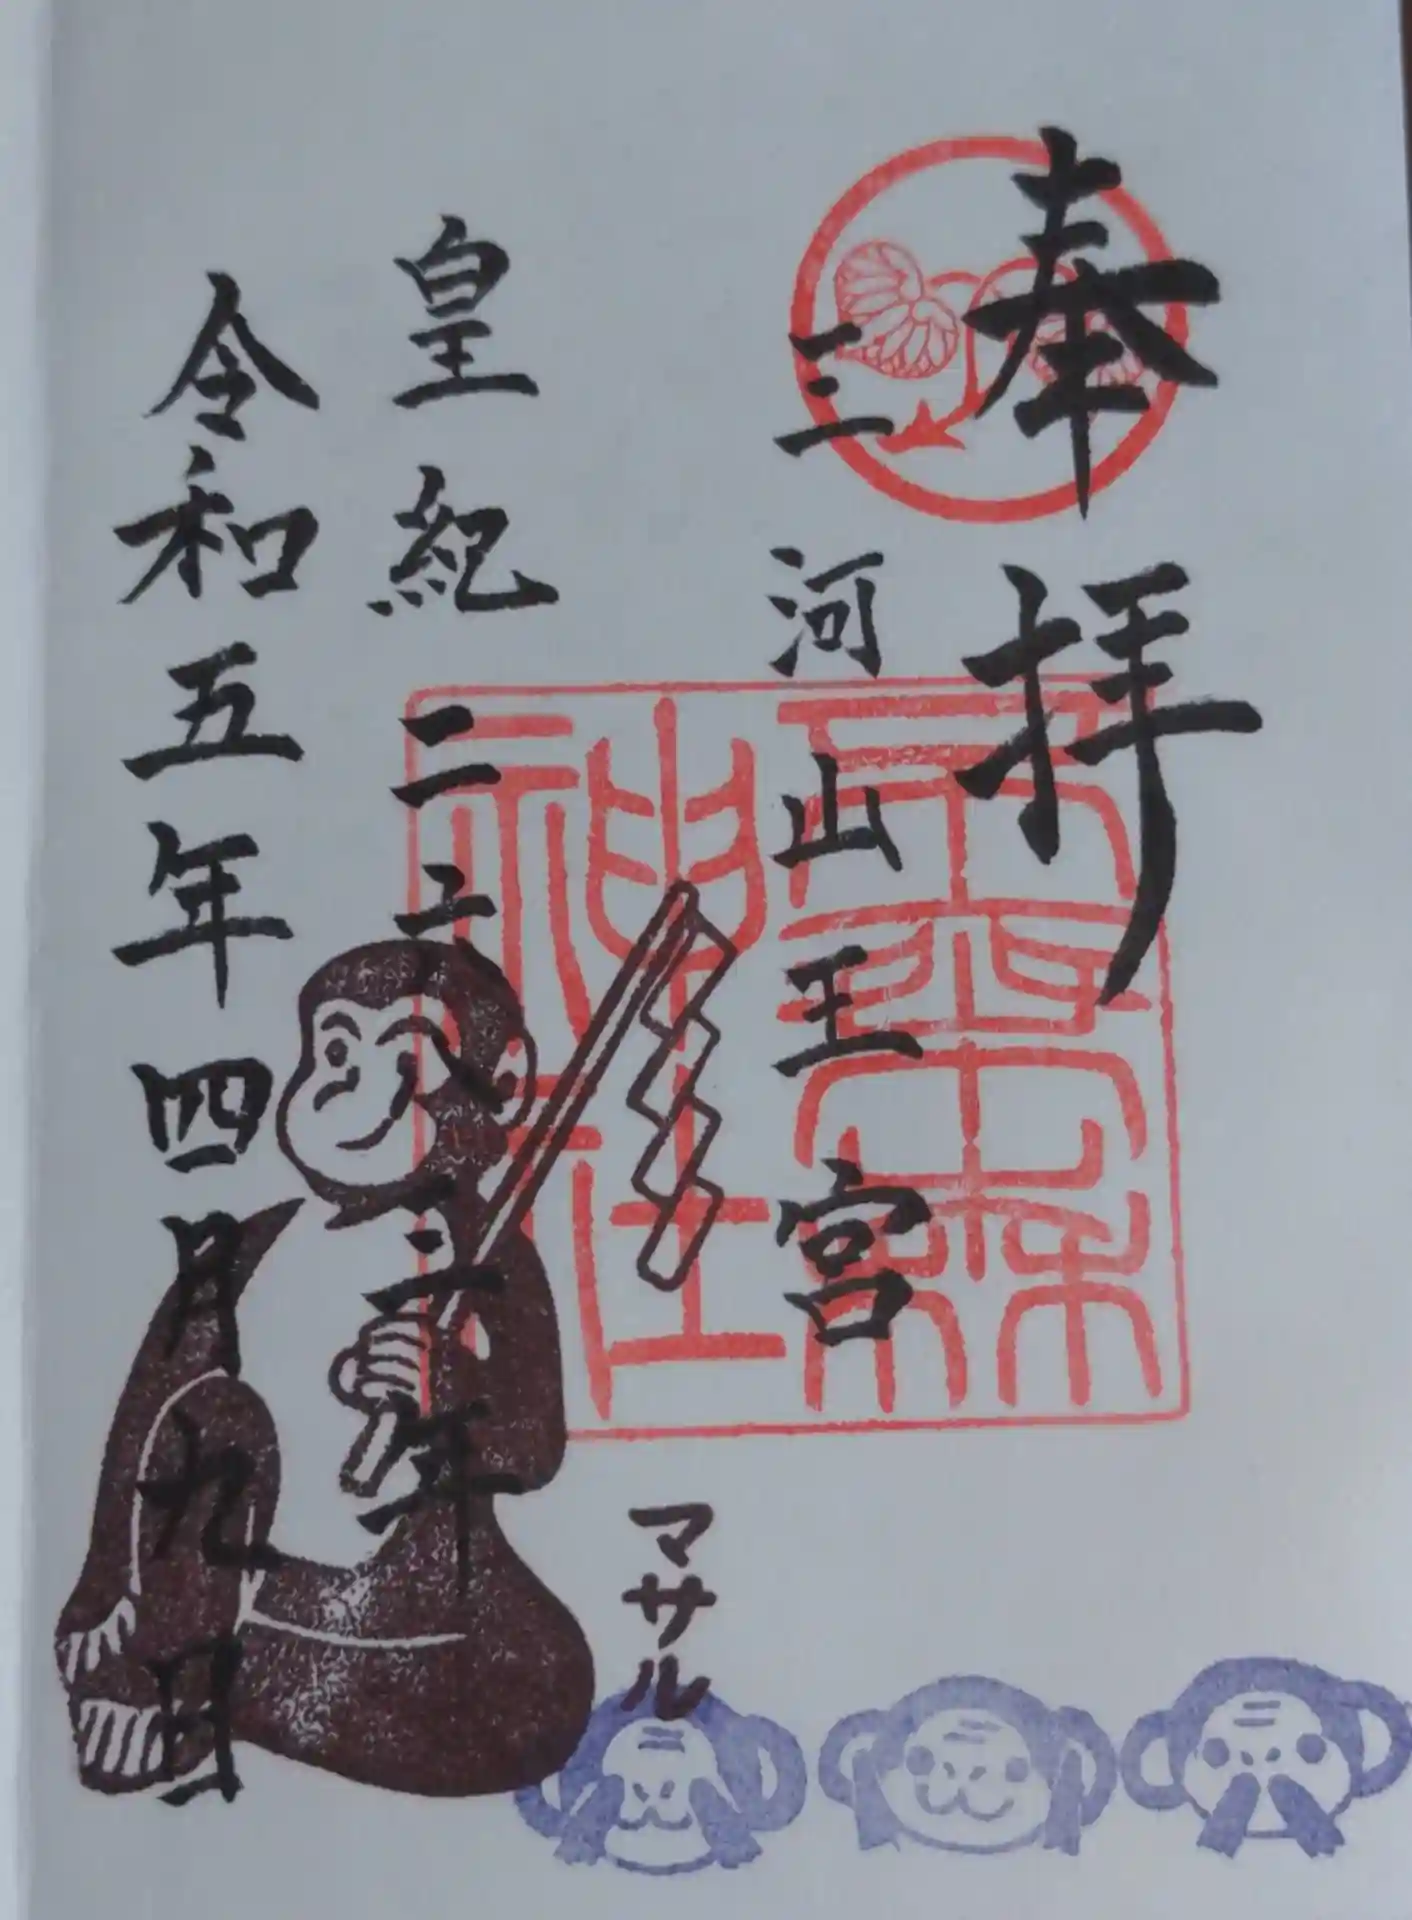 奉拝
三河山王宮
神社
マサル
皇紀二六八三年
令和五年四月九日